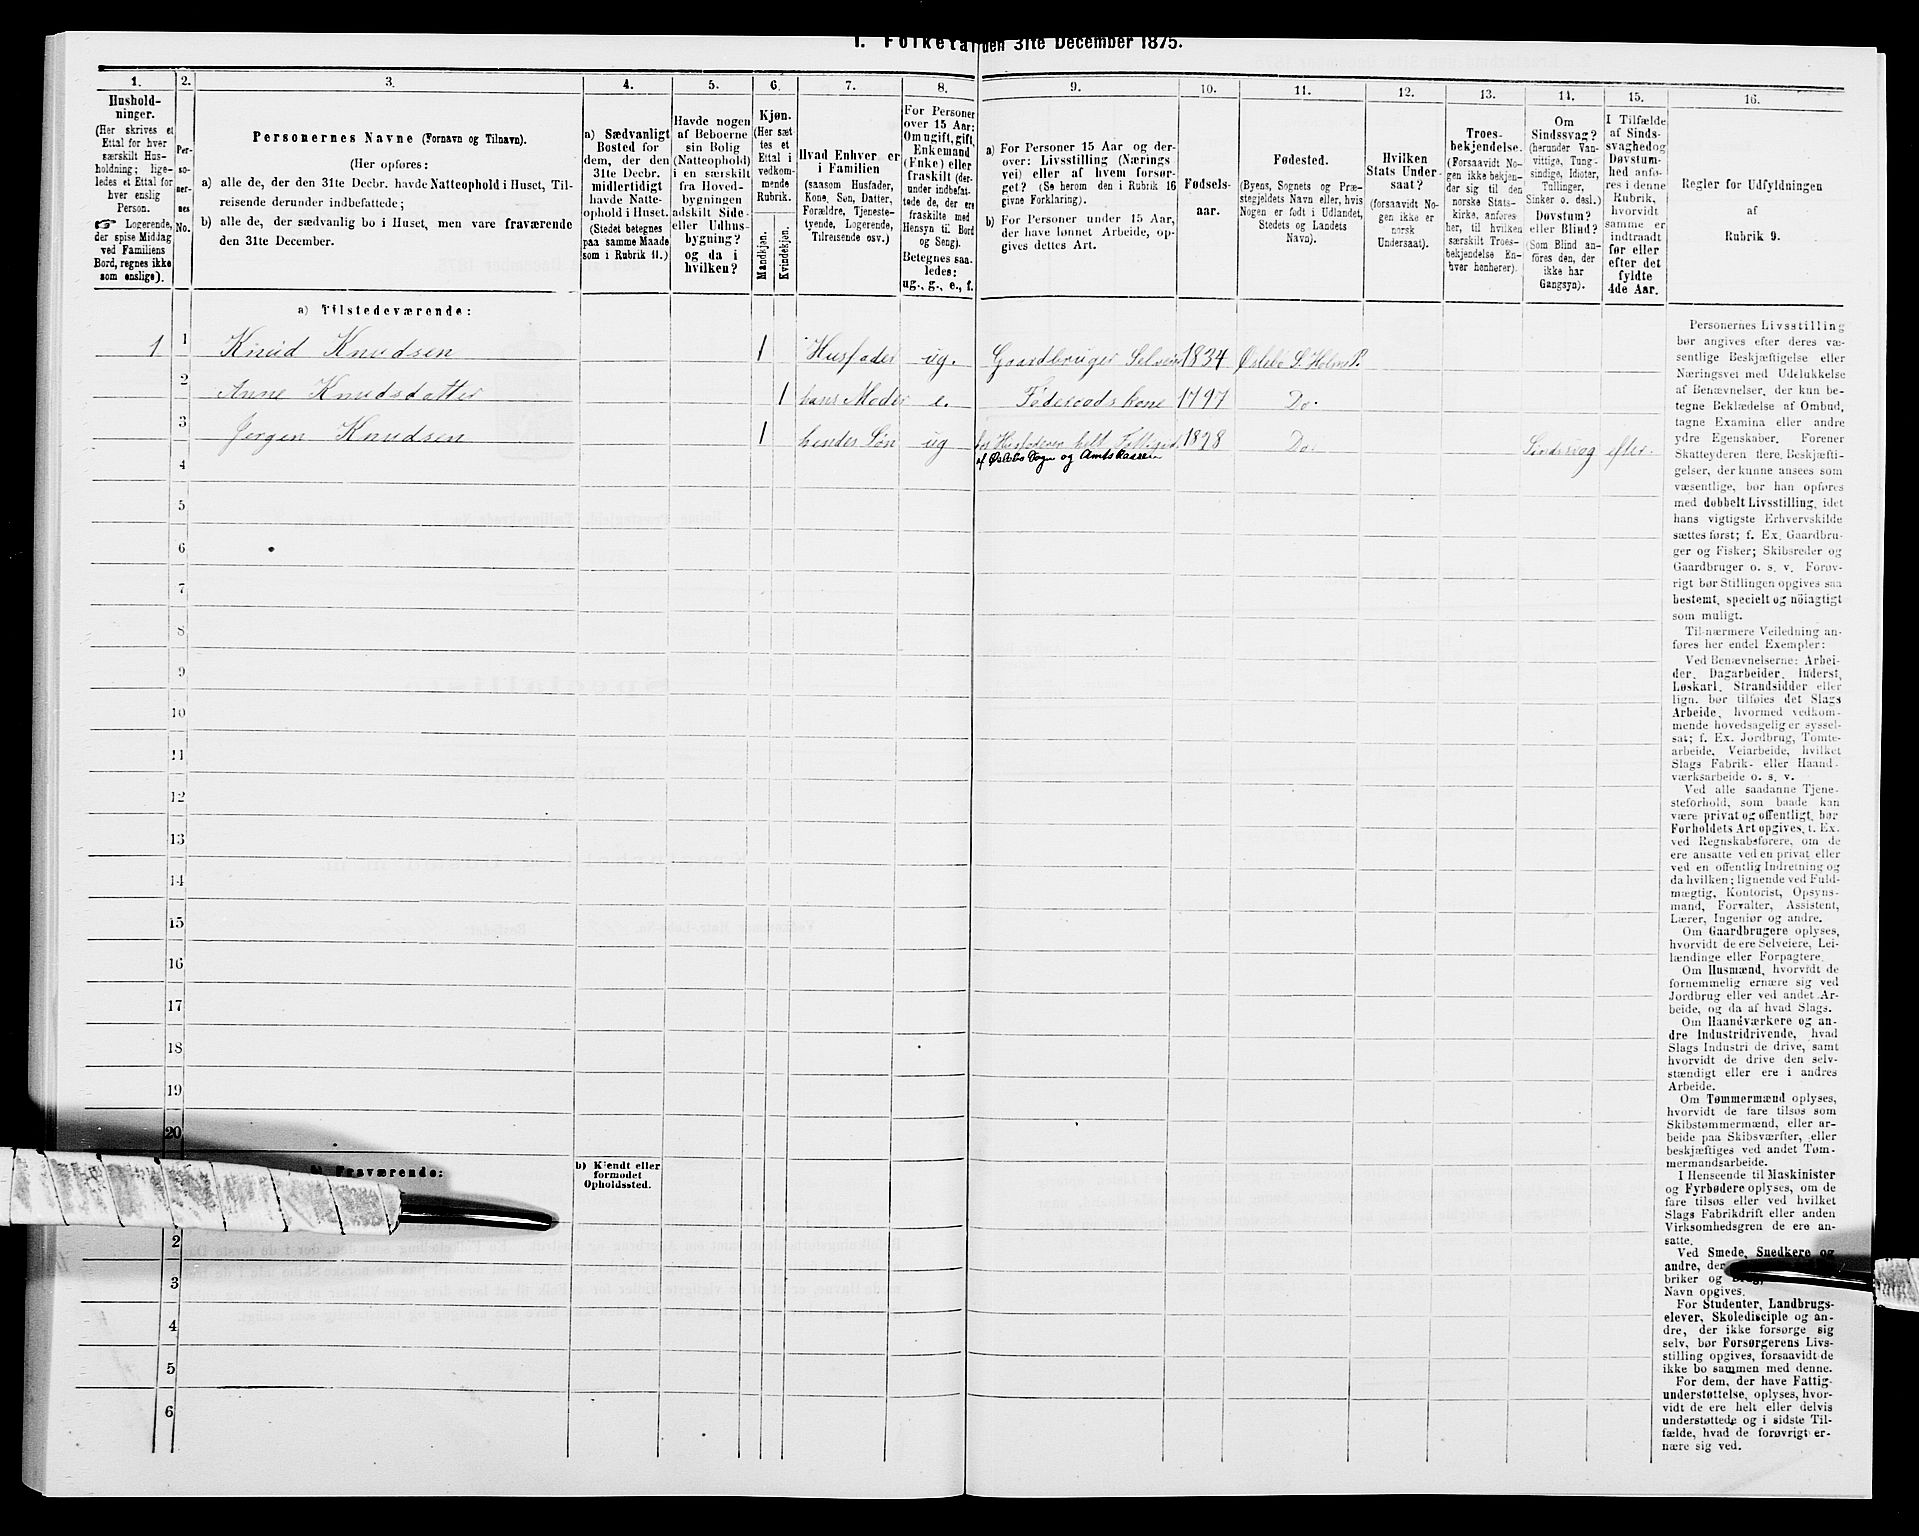 1. Folketal den 31te December 1875.
1.
Hushold-
ninger.
(Her skrives et
Ettal for hver
særskilt Hus-
holdning; lige-
ledes et Ettal for
hver enslig
Person.
☞ Logerende,
der spise Middag
ved Familiens
Bord, regnes ikke
som enslige).
2.
Per-
so-
ner-
nes
No.
3.
Personernes Navne (Fornavn og Tilnavn).
(Her opføres:
a) alle de, der den 31te Decbr. havde Natteophold i Huset, Til-
reisende derunder indbefattede;
b) alle de, der sædvanlig bo i Huset, men vare fraværende
den 31te December.
4.
a) Sædvanligt
Bosted for
dem, der den
31te Decbr.
midlertidigt
havde Natte-
ophold i Huset.
(Stedet betegnes
paa samme Maade
som i Rubrik 11.)
5.
Havde nogen
af Beboerne
sin Bolig
(Natteophold)
i en særskilt
fra Hoved-
bygningen
adskilt Side-
eller Udhus-
bygning?
og da i
hvilken?
6.
Kjøn.
(Her sæt-
tes et
Ettal i
vedkom-
mende
Rubrik.
Mandkjøn.
Kvindekjøn.
7.
Hvad Enhver er
i Familien
(saasom Husfader,
Kone, Søn, Datter,
Forældre, Tjeneste-
tyende, Logerende,
Tilreisende osv.)
8.
For Personer
over 15 Aar:
Om ugift, gift,
Enkemand
(Enke) eller
fraskilt (der-
under indbefat-
tede de, der ere
fraskilte med
Hensyn til Bord
og Seng).
Betegnes saa-
ledes:
ug., g., e., f.
9.
a) For Personer 15 Aar og der-
over: Livsstilling (Nærings-
vei) eller af hvem forsør-
get? (Se herom den i Rubrik 16
givne Forklaring).
b) For Personer under 15 Aar,
der have lønnet Arbeide, op-
gives dettes Art.
10.
Fødsels-
aar.
11.
Fødested.
(Byens, Sognets og Præ-
stegjeldets Navn eller, hvis
Nogen er født i Udlandet,
Stedets og Landets
Navn).
12.
Hvilken
Stats Under-
saat?
(forsaavidt No-
gen ikke er
norsk
Undersaat).
13.
Troes-
bekjendelse.
(Forsaavidt No-
gen ikke bekjen-
der sig til den
norske Stats-
kirke, anføres
her, til hvilken
særskilt Troes-
bekjendelse En-
hver henhører).
14.
Om
Sindssvag?
(herunder Van-
vittige, Tung-
sindige, Idioter,
Tullinger,
Sinker o. desl.)
Døvstum?
eller Blind?
(Som Blind an-
føres den, der
ikke har
Gangsyn).
15.
I Tilfælde
af Sinds-
svaghed og
Døvstum-
hed anfø-
res i denne
Rubrik,
hvorvidt
samme er
indtraadt
før eller
efter det
fyldte
4de Aar.
16.
Regler for Udfyldningen
af
Rubrik 9.
a) Tilstedeværende:
1 1 Knud Knudsen 1 Husfader ug. Gaardbruger Selveier 1834 Øslebø S. Holm P.
2 Anne Knudsdatter 1 hans Moder e. Føderaadskone 1797 Do.
3 Jørgen Knudsen 1 hendes Søn ug hos Husfaderen helt 1828 Do. Sindssvag efter.
af Øslebø Sogn og Amtskassen
4
5
6
7
8
9
10
11
12
13
14
15
16
17
18
19
20
b) Fraværende:
b) Kjendt eller
formodet
Opholdssted.
2
3
4
5
6
Personernes Livsstilling
bør angives efter deres væ-
sentlige Beskjæftigelse eller
Næringsvei med Udelukkelse
af Benævnelser, der kun be-
tegne Beklædelse af Ombud,
tagne Examina eller andre
ydre Egenskaber. Forener
Skatteyderen flere Beskjæfti-
gelser, der kunne ansees som
væsentlige, bør han opføres
med dobbelt Livsstilling, idet
hans vigtigste Erhvervskilde
sættes først; f. Ex. Gaardbru-
ger og Fisker; Skibsreder og
Gaardbruger o. s. v. Forøv-
rigt bør Stillingen opgives saa
bestemt, specielt og nöiagtigt
som muligt.
Til nærmere Veiledning an-
føres her endel Exempler:
Ved Benævnelserne: Arbei-
der, Dagarbeider, Inderst,
Løskarl, Strandsidder eller
lign. bør tilføies det Slags
Arbeide, hvormed vedkom-
mende hovedsagelig er syssel-
sat; f. Ex. Jordbrug, Tomte-
arbeide, Veiarbeide, hvilket
Slags Fabrik- eller Haand-
værksarbeide o. s. v.
Ved alle saadanne Tjene-
steforhold, som baade kan
være privat og offentligt, bør
Forholdets Art opgives, t. Ex.
ved Regnskabsførere, om de
ere ansatte ved en privat eller
ved en offentlig Indretning og
da hvilken; lignende ved Fuld-
mægtig, Kontorist, Opsyns-
mand, Forvalter, Assistent,
Lærer, Ingeniør og andre.
Om Gaardbrugere oplyses,
hvorvidt de ere Selveiere, Lei-
lændinge eller Forpagtere.
Om Husmænd, hvorvidt de
fornemmelig ernære sig ved
Jordbrug eller ved andet Ar-
beide, og da af hvad Slags.
Om Haandværkere og an-
dre Industridrivende, hvad
Slags Industri de drive, samt
hvorvidt de drive den selv-
stændigt eller ere i andres
Arbeide.
Om Tømmermænd oplyses,
hvorvidt de fare tilsøs som
Skibstømmermænd, eller ar-
beide paa Skibsværfter, eller
beskjæftiges ved andet Tøm-
mermandsarbeide.
I Henseende til Maskinister
og Fyrbødere oplyses, om de
fare tilsøs eller ved hvilket
Slags Fabrikdrift eller anden
Virksomhedsgren de ere an-
satte.
Ved Smede, Snedkere og
andre, der
briker og
Navn opgives.
For Studenter, Landbrugs-
elever, Skoledisciple og an-
dre, der ikke forsørge sig
selv, bør Forsørgerens Livs-
stilling opgives, forsaavidt de
ikke bo sammen med denne.
For dem, der have Fattig-
understøttelse, oplyses, hvor-
vidt de ere helt eller delvis
understøttede og i sidste Til-
fælde, hvad de forøvrigt er-
nære sig ved.